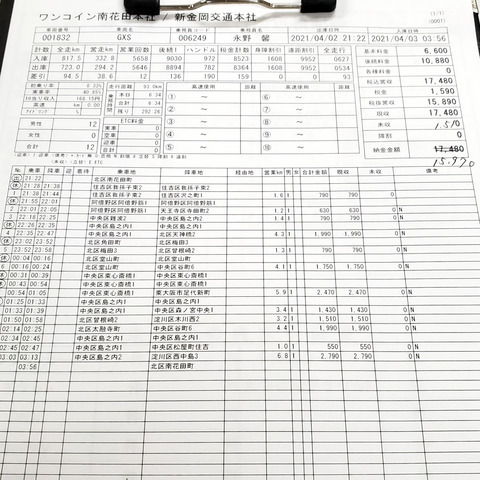 ワンコイン南花田本社 / 新金岡交通本社
(1/1)
(0001)
車両番号 車両名 乗務員コード 乗務員名 出庫日時 入庫日時
001832 GXS 006249 永野 馨 2021/04/02 21:22 2021/04/03 03:56
計数 全走km 営走km 営業回数 後続1 ハンドル 税金計数 身障割引 遠距割引 全走行
入庫 817.5 332.8 5658 9030 972 8523 1608 9952 0627
出庫 723.0 294.2 5646 8894 782 8364 1608 9952 0534
差引 94.5 38.6 12 136 190 159 0 0 93
基本料金 6,600
後続料金 10,880
各種料金 0
税込営収 17,480
税金 1,590
税抜営収 15,890
現収 17,480
未収 0
1,510
障割 0
納金金額 17,480
15,970
走行距離 93.0km
高速使用 距離 高速使用 距離
男性 12
女性 0
合計 12
ETC料金
実車 0
空車 0
迎車 0
合計 0
No. 乗車 降車 迎 着待 乗車地 降車地 経由地 営業km 男 女 合計金額 現収 未収 備考
21:22 北区南花田町
21:28 21:38 住吉区我孫子東2 住吉区我孫子東2
1 21:38 21:44 住吉区我孫子東2 住吉区沢之町1 1.6 1 790 790 0 N
21:55 22:01 阿倍野区阿倍野筋1 阿倍野区阿倍野筋1
2 22:01 22:05 阿倍野区阿倍野筋1 天王寺区寺田町2 1.2 1 630 630 0 N
3 22:18 22:25 中央区難波2 中央区島之内1 1.2 1 790 790 0 N
22:26 22:35 中央区島之内1 中央区島之内1
4 22:35 22:47 中央区島之内1 北区天神橋2 4.3 1
23:02 23:52 北区角田町 北区梅田3
5 23:52 23:58 北区梅田3 北区曽根崎2 1.3 1 790 790 0 N
00:04 00:16 北区堂山町 北区堂山町
6 00:16 00:24 北区堂山町 中央区谷町6 4.1 1 1,750 1,750 0 N
00:31 00:43 中央区東心斎橋1 中央区東心斎橋1
00:43 00:54 中央区東心斎橋1 中央区東心斎橋1
00:54 01:05 中央区東心斎橋1 東大阪市足代新町 5.9 1 2,470 2,470 0 N
01:25 01:33 中央区島之内1 中央区島之内1
01:33 中央区島之内1 中央区森ノ宮中央1 3.4 1 1,430 1,430 0 N
01:51 北区曽根崎2 淀川区木川西2 3.2 1 1,510 1,510 0 N
02:14 02:25 北区太融寺町 中央区谷町6 4.4 1 1,990 1,990 0 N
02:34 02:45 中央区島之内1 中央区島之内1
02:45 02:47 中央区島之内1 中央区松屋町住吉 1.0 1 550 550 0 N
03:03 03:13 中央区島之内2 淀川区西中島3 6.8 1 2,790 2,790 0 N
03:56 北区南花田町